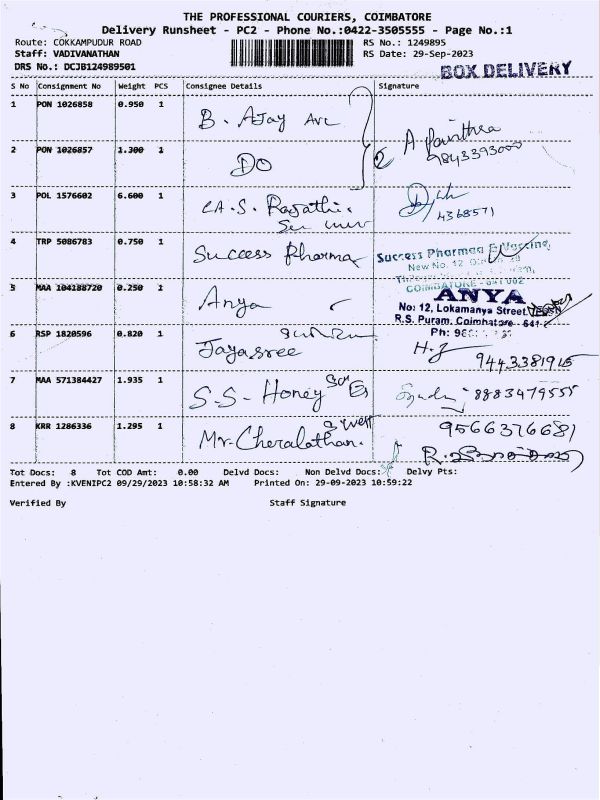 THE PROFESSIONAL COURIERS, COIMBATORE
Delivery Runsheet - PC2 - Phone No.:0422-3505555 - Page No.:1
Route: COKKAMPUDUR ROAD RS No.: 1249895
Staff: VADIVANATHAN RS Date: 29-Sep-2023
DRS No.: DCJB124989501
BOX DELIVERY
S No Consignment No Weight PCS Consignee Details Signature
1 PON 1026858 0.950 1 B. AJay
2 PON 1026857 1.300 1 DO
A Pavithra
9843393000
3 POL 1576602 6.600 1 S. Rajathi
4368571
4 TRP 5086783 0.750 1 Success Pharma
Success Pharmaa & Vaccine,
New No. 12
COIMBATORE - 641 002
5 MAA 104188720 0.250 1 Anya
ANYA
No: 12, Lokamanya Street
R.S. Puram, Coimbatore - 641
Ph:
6 RSP 1820596 0.820 1 Jayasree
9443381915
7 MAA 571384427 1.935 1 S.S- Honey
8883479555
8 KRR 1286336 1.295 1 Mr. Cheralathan.
9566376681
Tot Docs: 8 Tot COD Amt: 0.00 Delvd Docs: Non Delvd Docs: Delvy Pts:
Entered By :KVENIPC2 09/29/2023 10:58:32 AM Printed On: 29-09-2023 10:59:22
Verified By Staff Signature